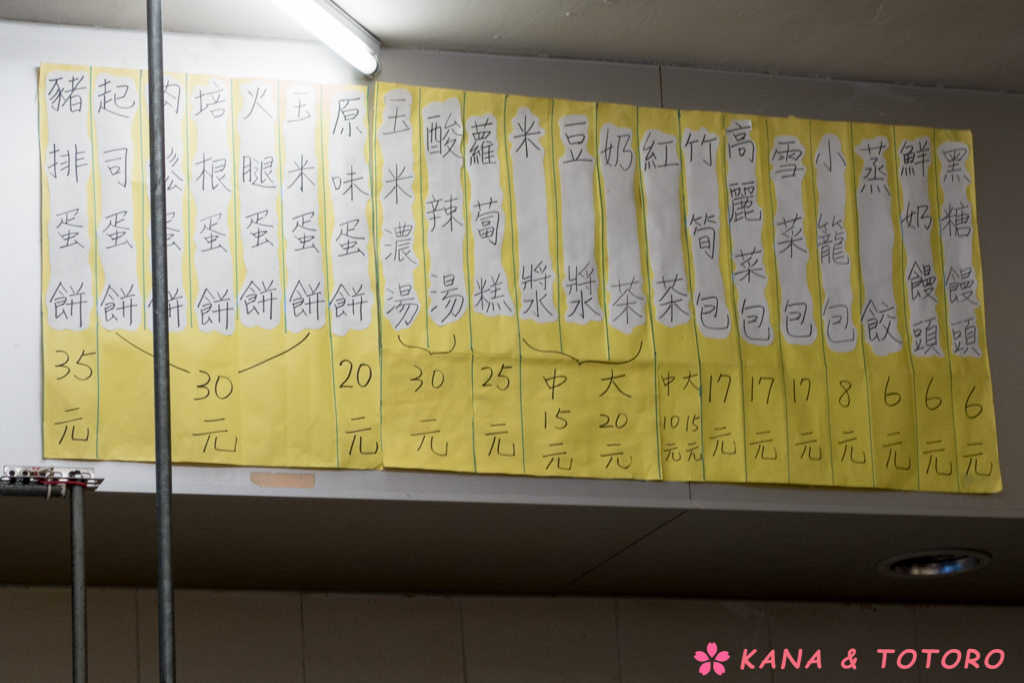 黑糖饅頭
6元
鮮奶饅頭
6元
蒸餃
6元
小籠包
8元
雪菜包
17元
高麗菜包
17元
竹筍包
17元
紅茶
大15元
中10元
奶茶
豆漿
米漿
大20元
中15元
蘿蔔糕
25元
酸辣湯
玉米濃湯
30元
原味蛋餅
20元
玉米蛋餅
火腿蛋餅
培根蛋餅
肉鬆蛋餅
起司蛋餅
30元
豬排蛋餅
35元
KANA & TOTORO